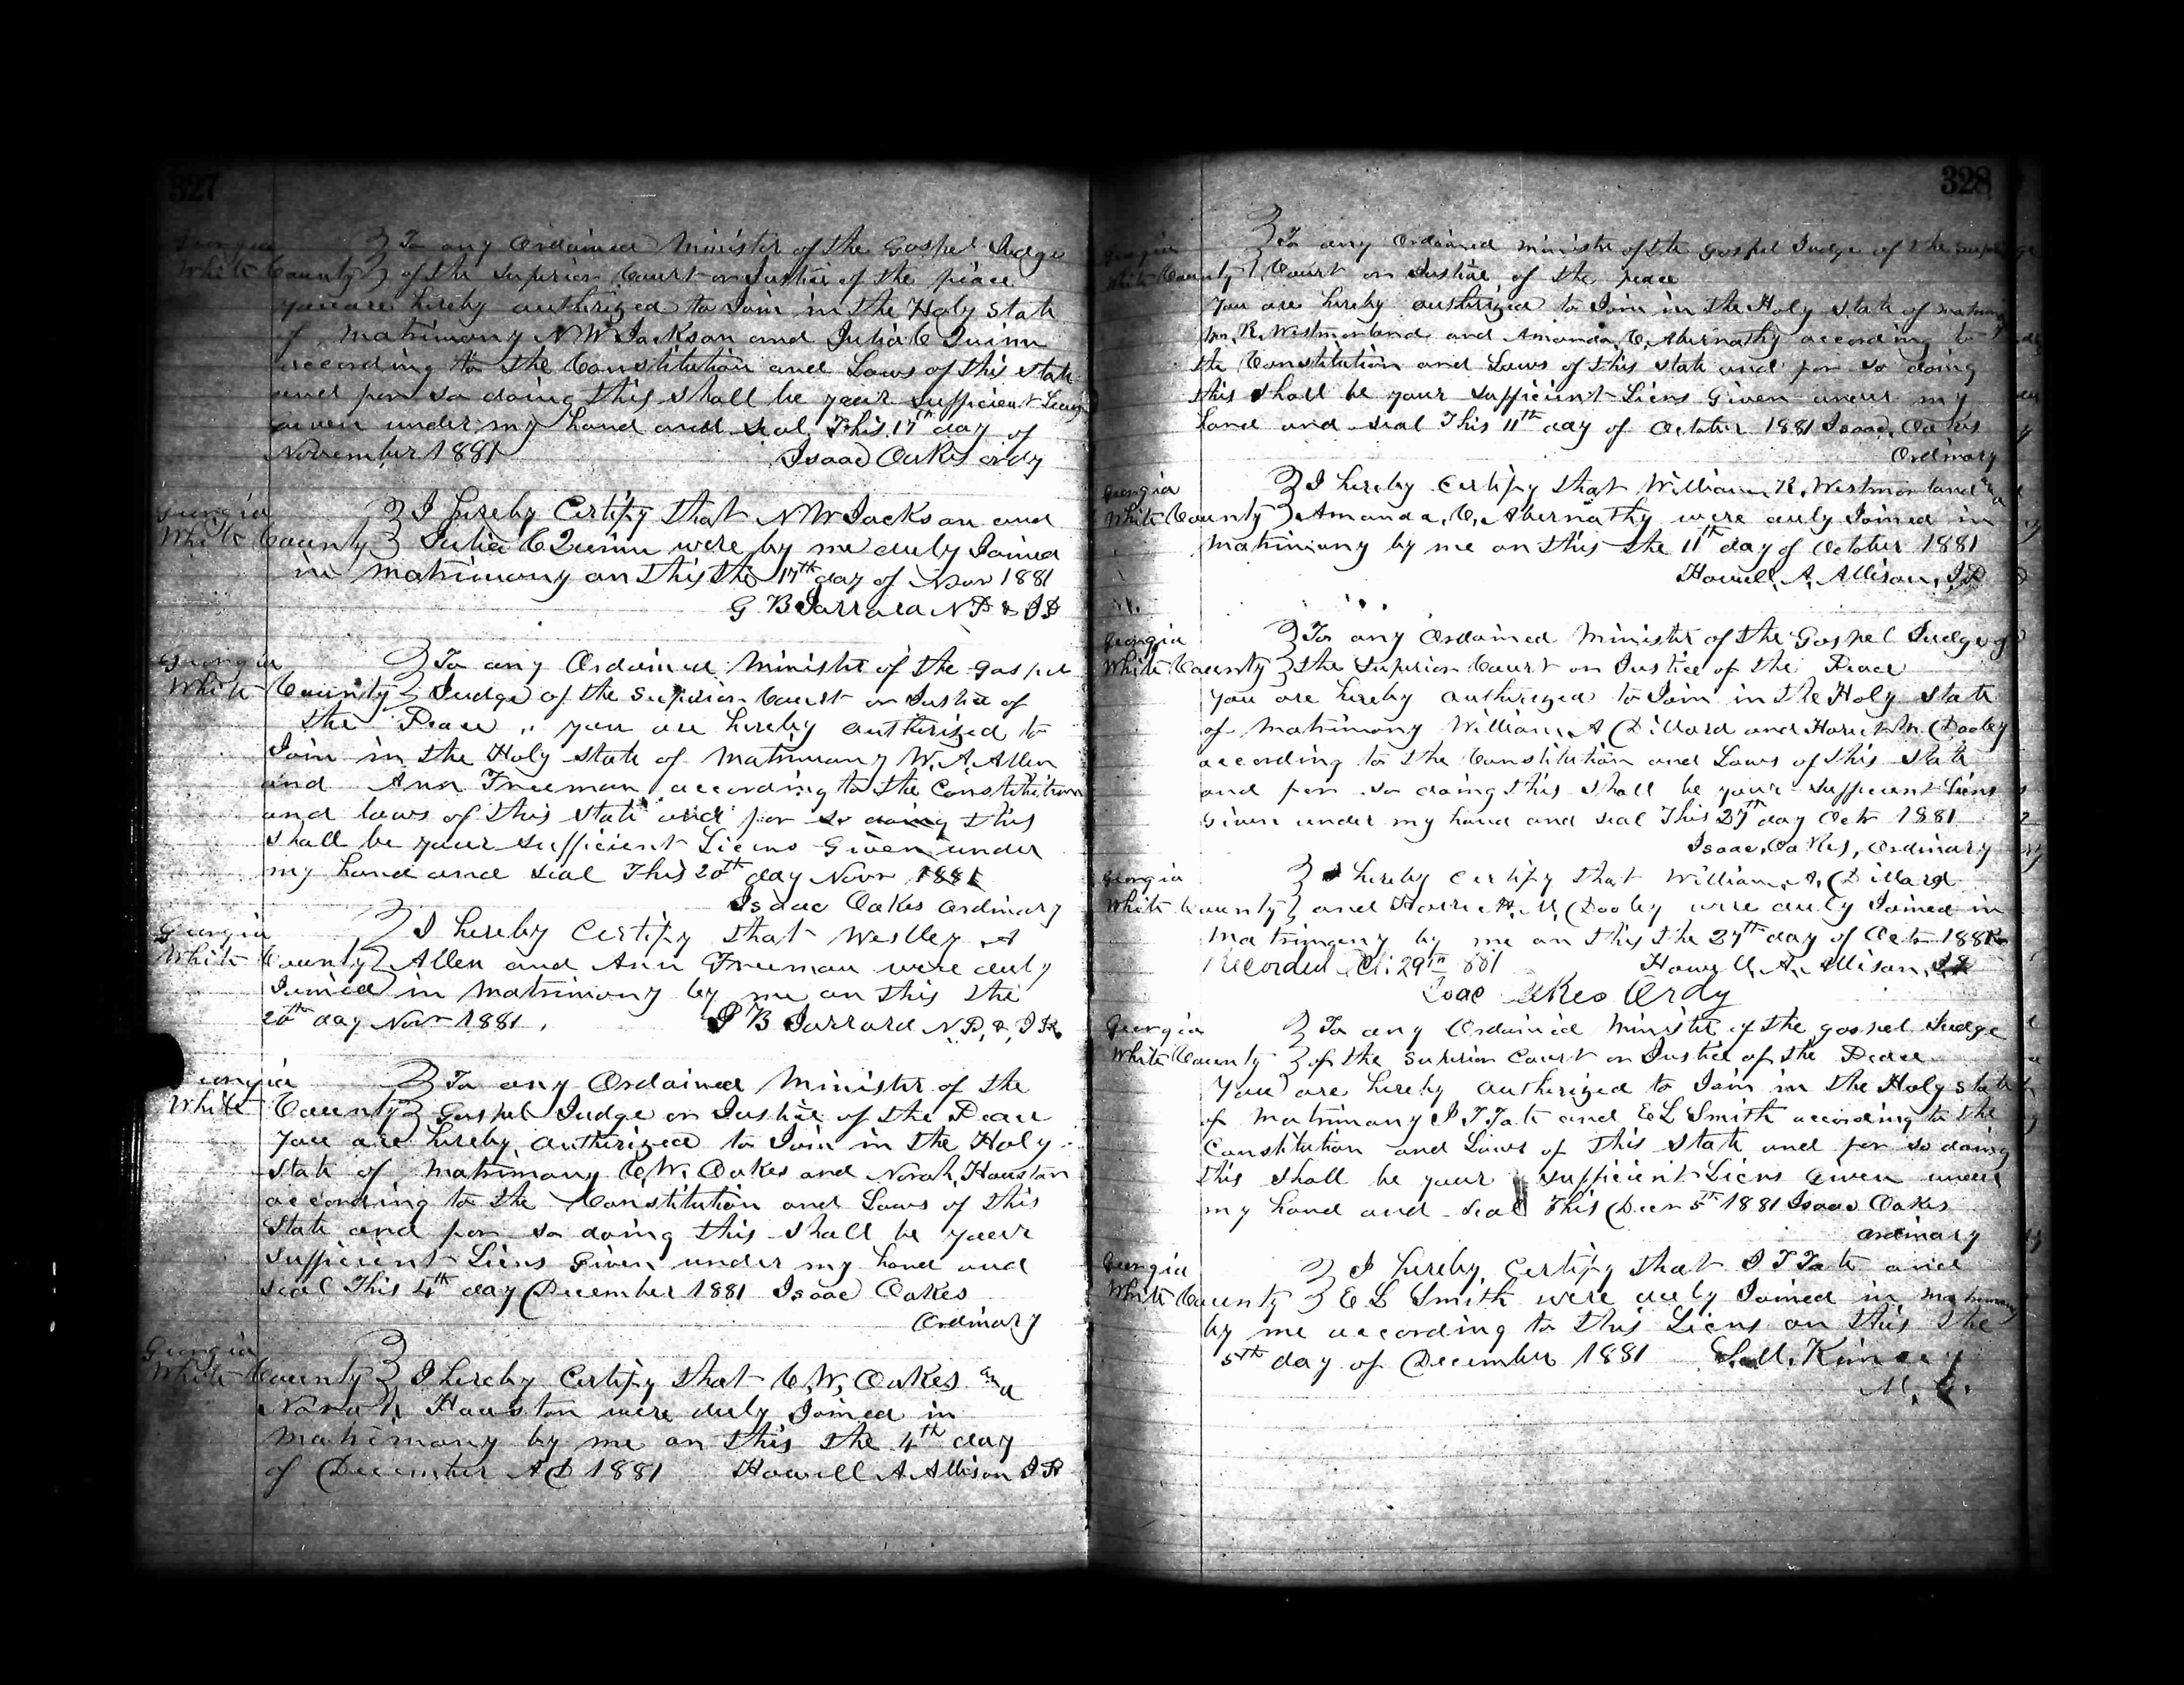 327
Georgia
White County } To any Ordained Minister of the Gospel Judge
of the Superior Court or Justice of the peace
you are hereby authorized to Join in the Holy State
of Matrimony N W Jackson and Julia C Quinn
according to the Constitution and Laws of this state
and for so doing this shall be your sufficient Liens
Given under my hand and seal This 17th day of
November 1881 Isaac Oakes ordy
Georgia
White County } I hereby Certify that N W Jackson and
Julia C Quinn were by me duly Joined
in Matrimony on this the 17th day of Nov 1881
G B Jarrard N P & J P
Georgia
White County } To any Ordained Minister of the Gospel
Judge of the Superior Court or Justice of
the Peace you are hereby authorized to
Join in the Holy State of Matrimony W. A. Allen
and Ann Freeman according to the Constitution
and laws of this state and for so doing this
shall be your sufficient Liens Given under
my hand and seal This 20th day Novr 1881
Isaac Oakes Ordinary
Georgia
White County } I hereby Certify that Weslley A
Allen and Ann Freeman were duly
Joined in Matrimony by me on this the
20th day Novr 1881. B Jarrard N. P. & J P.
Georgia
White County } To any Ordained Minister of the
Gospel Judge or Justice of the Peace
You are hereby authorized to Join in the Holy
State of Matrimony C. W. Oakes and Norah Houston
according to the Constitution and Laws of this
State and for so doing this shall be your
sufficient Liens Given under my hand and
seal This 4th day December 1881 Isaac Oakes
Ordinary
Georgia
White County } I hereby Certify that C. W. Oakes and
Norah Houston were duly Joined in
Matrimony by me on this the 4th day
of December A D 1881 Howell A Allison J P
328
Georgia
White County } To any Ordained Minister of the Gospel Judge of the Superior
Court or Justice of the peace
You are hereby authorized to Join in the Holy State of Matrimony
Wm. R. Westmorland and Amanda. C. Abernathy according to
the Constitution and Laws of this State and for so doing
this shall be your sufficient Liens Given under my
hand and seal This 11th day of October 1881 Isaac Oakes
Ordinary
Georgia
White County } I hereby Certify that William R. Westmorland and
Amanda. C. Abernathy were duly Joined in
Matrimony by me on this the 11th day of October 1881
Howell. A. Allison, J P
Georgia
White County } To any Ordained Minister of the Gospel Judge of
the Superior Court or Justice of the Peace
You are hereby authorized to Join in the Holy State
of Matrimony William A Dillard and M. Dooley
according to the Constitution and Laws of this State
and for so doing this shall be your sufficient Liens
Given under my hand and seal This 27th day Octr 1881
Isaac, Oakes, Ordinary
Georgia
White County } I hereby Certify that William. A. Dillard
and M. Dooley were duly Joined in
Matrimony by me on this the 27th day of Octr 1881
Recorded Oct. 29th 1881 Howell, A. Allison, J P
Isaac Oakes Ordy
Georgia
White County } To any Ordained Minister of the gospel Judge
of the Superior Court or Justice of the Peace
You are hereby authorized to Join in the Holy state
of Matrimony J T Tate and E L Smith according to the
Constitution and Laws of this State and for so doing
this shall be your sufficient Liens Given under
my hand and seal This Decr 5th 1881 Isaac Oakes
Ordinary
Georgia
White County } I hereby Certify that J T Tate and
E L Smith were duly Joined in Matrimony
by me according to this Liens on this the
5th day of December 1881 Kinsey
M. G.